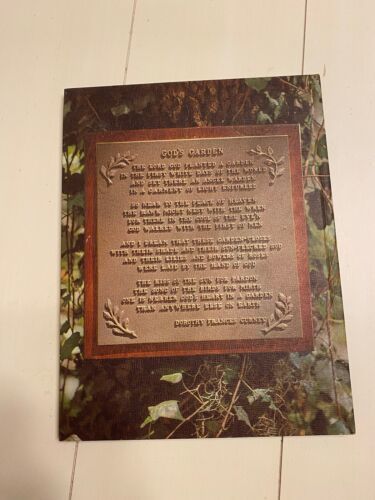 GOD'S GARDEN
THE LORD GOD PLANTED A GARDEN
IN THE FIRST WHITE DAYS OF THE WORLD
AND SET THERE AN ANGEL WARDEN
IN A GARMENT OF LIGHT ENFURLED
SO NEAR TO THE PEACE OF HEAVEN
THE HAWK MIGHT NEST WITH THE WREN
FOR THERE IN THE COOL OF THE EVEN
GOD WALKED WITH THE FIRST OF MEN
AND I DREAM THAT THESE GARDEN CLOSES
WITH THEIR SHADE AND THEIR SUN-FLECKED SOD
AND THEIR LILIES AND BOWERS OF ROSES
WERE LAID BY THE HAND OF GOD
THE KISS OF THE SUN FOR PARDON
THE SONG OF THE BIRDS FOR MIRTH
ONE IS NEARER GOD'S HEART IN A GARDEN
THAN ANYWHERE ELSE ON EARTH
DOROTHY FRANCES GURNEY